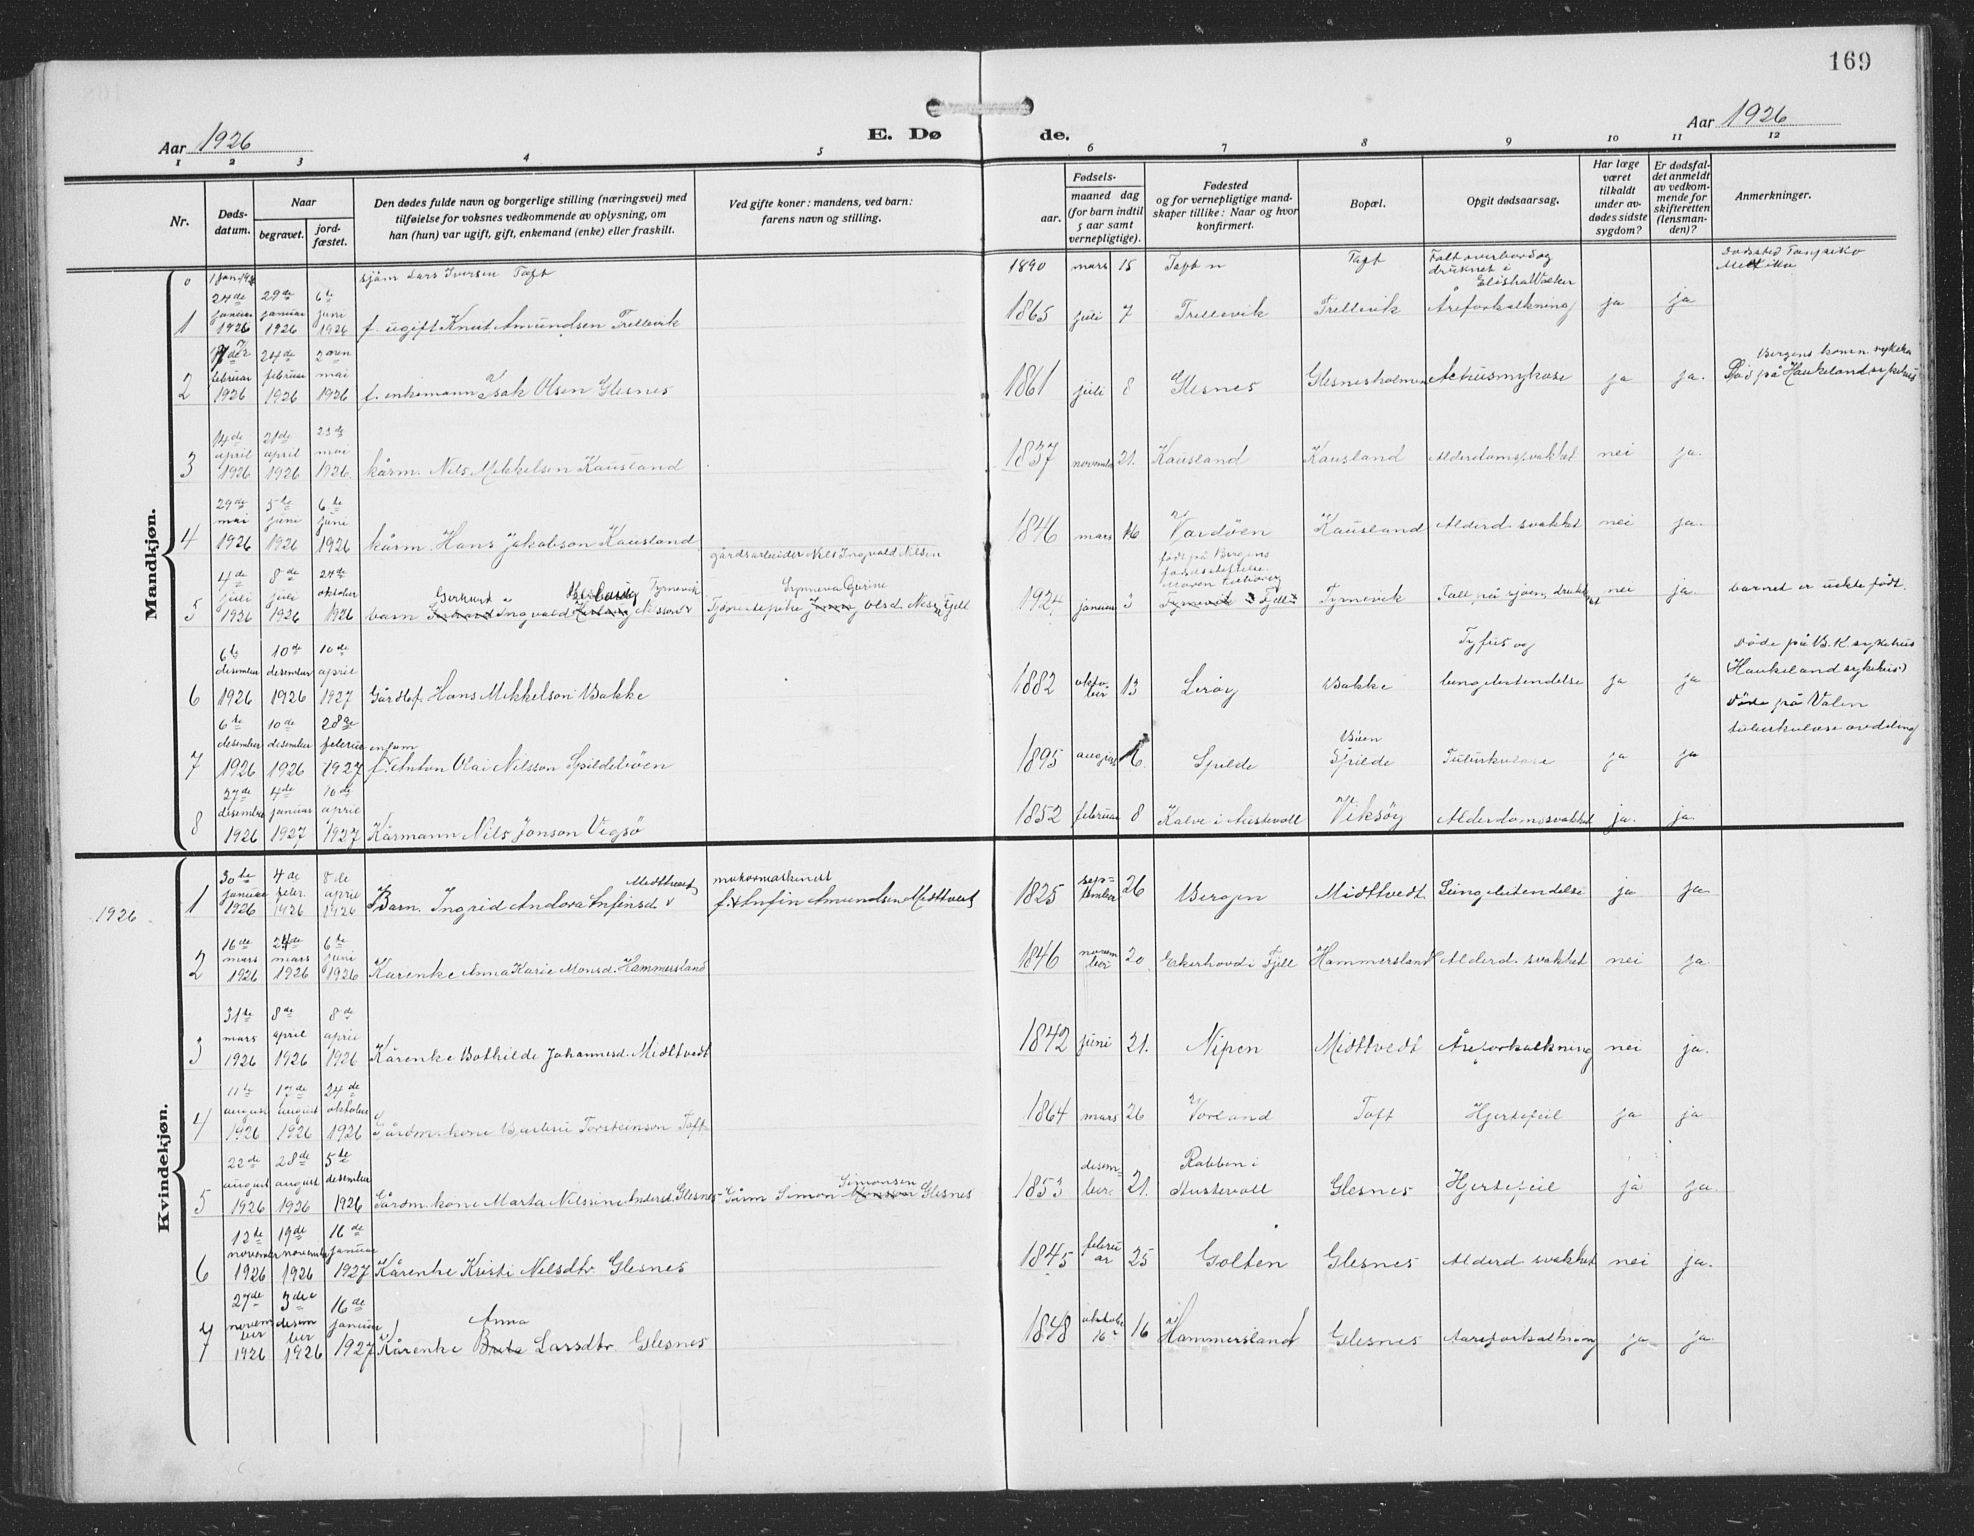 169
Aar 1926
E. Dø
de.
Aar 1926
1 2 3 4 5 6 7 8 9 10 11 12
Nr.
Døds-
datum.
Naar
begravet.
jord-
fæstet.
Den dødes fulde navn og borgerlige stilling (næringsvei) med
tilføielse for voksnes vedkommende av oplysning, om
han (hun) var ugift, gift, enkemand (enke) eller fraskilt.
Ved gifte koner: mandens, ved barn:
farens navn og stilling.
Fødsels-
aar.
maaned dag
(for barn indtil
5 aar samt
vernepligtige).
Fødested
og for vernepligtige mand-
skaper tillike: Naar og hvor
konfirmert.
Bopæl.
Opgit dødsaarsag.
Har læge
været
tilkaldt
under av-
dødes sidste
sygdom?
Er dødsfal-
det anmeldt
av vedkom-
mende for
skifteretten
(lensman-
den)?
Anmerkninger.
Mandkjøn.
0 sjøm Lars Iversen Toft 1890 mars 15 Toft Falt overbord og
druknet i
1 24de januar 1926 29de januar 1926 6te juni 1926 f. ugift Knut Amundsen Trellevik 1865 juli 7 Trellevik Trellevik Åreforkalkning ja ja
2 februar 1926 24de februar 1926 mai 1926 f. enkemann Isak Olsen Glesnes 1861 juli 8 Glesnes Glesnesholmen ja ja. Død på Haukeland sykehus
3 14de april 1926 21de april 1926 23de mai 1926. kårm. Nils Mikkelsen Kausland 1837 november 21. Kausland Kausland Alderdomsvakhet nei ja.
4 29de mai 1926 5te juni 1926 6te juni 1926 kårm. Hans Jakobson Kausland 1846 mars 16 Vardøen Kausland Alderd. svakhet nei ja.
gårdsarbeider Nils Ingvald Nilsen
5 4de juli 1926 8de juli 1926 24de oktober 1926 barn Gerhard Ingvald Nilsson Tyrnevik
Synneva Gurine Olsd. Fjell
1924 januar 3 født på Bergens Tyrnevik Falt på sjøen, druknet nei ja. barnet er uekte født.
6 6te desember 1926 10de desember 1926 10de april 1927 Gårdbf. Hans Mikkelson Bakke 1882 oktober 13 Lerøy Bakke Tyfus og
lungebetendelse ja ja Døde på B.K. sykehus
(Haukeland sykehus)
7 6te desember 1926 10de desember 1926 28de februar 1927 f. Anton Olai Nilsson Spildebøen 1895 august 6. Spilde Bøen
Spilde Tuberkulose ja ja Døde på Valen
tuberkulose avdeling
8 27de desember 1926 4de januar 1927 10de april 1927 Kårmann Nils Jonson Vigsø 1852 februar 8 Kalve i Austevoll Viksøy Alderdomssvakhet ja. ja.
Kvindekjøn.
1926
1 30te januar 1926 4de febr. 1926 8de april 1926 Barn. Ingrid Andora Anfinsd. Midttveit motormaskinist
f. Anfin Amundsen Midttveit 1825 september 26 Bergen Midttvedt Lungebetendelse ja ja.
2 16de mars 1926 24de mars 1926 6te juni 1926 Kårenke Anna Karie Monsd. Hammersland 1846 november 20. Ekerhovd i Fjell Hammersland Alderd. svakhet nei ja.
3 31te mars 1926 8de april 1926 8de april 1926 Kårenke Bothilde Johannesd. Midttvedt 1842 juni 21. Nipen Midttvedt Åreforkalkning nei ja.
4 11te august 1926 17de august 1926 24de oktober 1926 Gårdm. kone Barbru Torsteinson Toft 1864 mars 26 Vorland Toft Hjertefeil ja ja.
5 22de august 1926 28de august 1926 5te desember 1926 Gårdm. kone Marta Nilssine Andersd. Glesnes Gårm Simon Simonsen Glesnes 1853 desember. 21. Rabben i
Austevoll Glesnes Hjertefeil ja ja.
6 12de november 1926 19de november 1926 16de januar 1927 Kårenke Kristi Nilsdtr. Glesnes 1845 februar 25 Golten Glesnes Alderd. svakhet nei ja.
7 27de november 1926 3de desember 1926 16de januar 1927 Kårenke Anna Larsdtr. Glesnes 1848 oktober 16 Hammersland Glesnes Aareforkalkning ja ja.